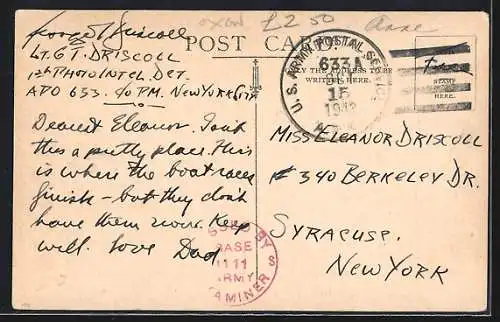 oxon £2 50
George T Driscoll
POST CARD
LT. G T. DRISCOLL
PHOTO INTEL. DET.
APO 633. c/o P.M. NEW YORK
U.S. ARMY POSTAL
633A
15
LY THE ADDRESS TO BE
WRITTEN HERE.
Free
STAMP
HERE.
Dearest Eleanor. Isn't
this a pretty place. This
is where the boat races
finish - but they don't
have them now. Keep
well. love Dad.
BY
BASE
1111
ARMY
EXAMINER S
MISS ELEANOR DRISCOLL
# 340 BERKELEY DR.
SYRACUSE.
NEW YORK